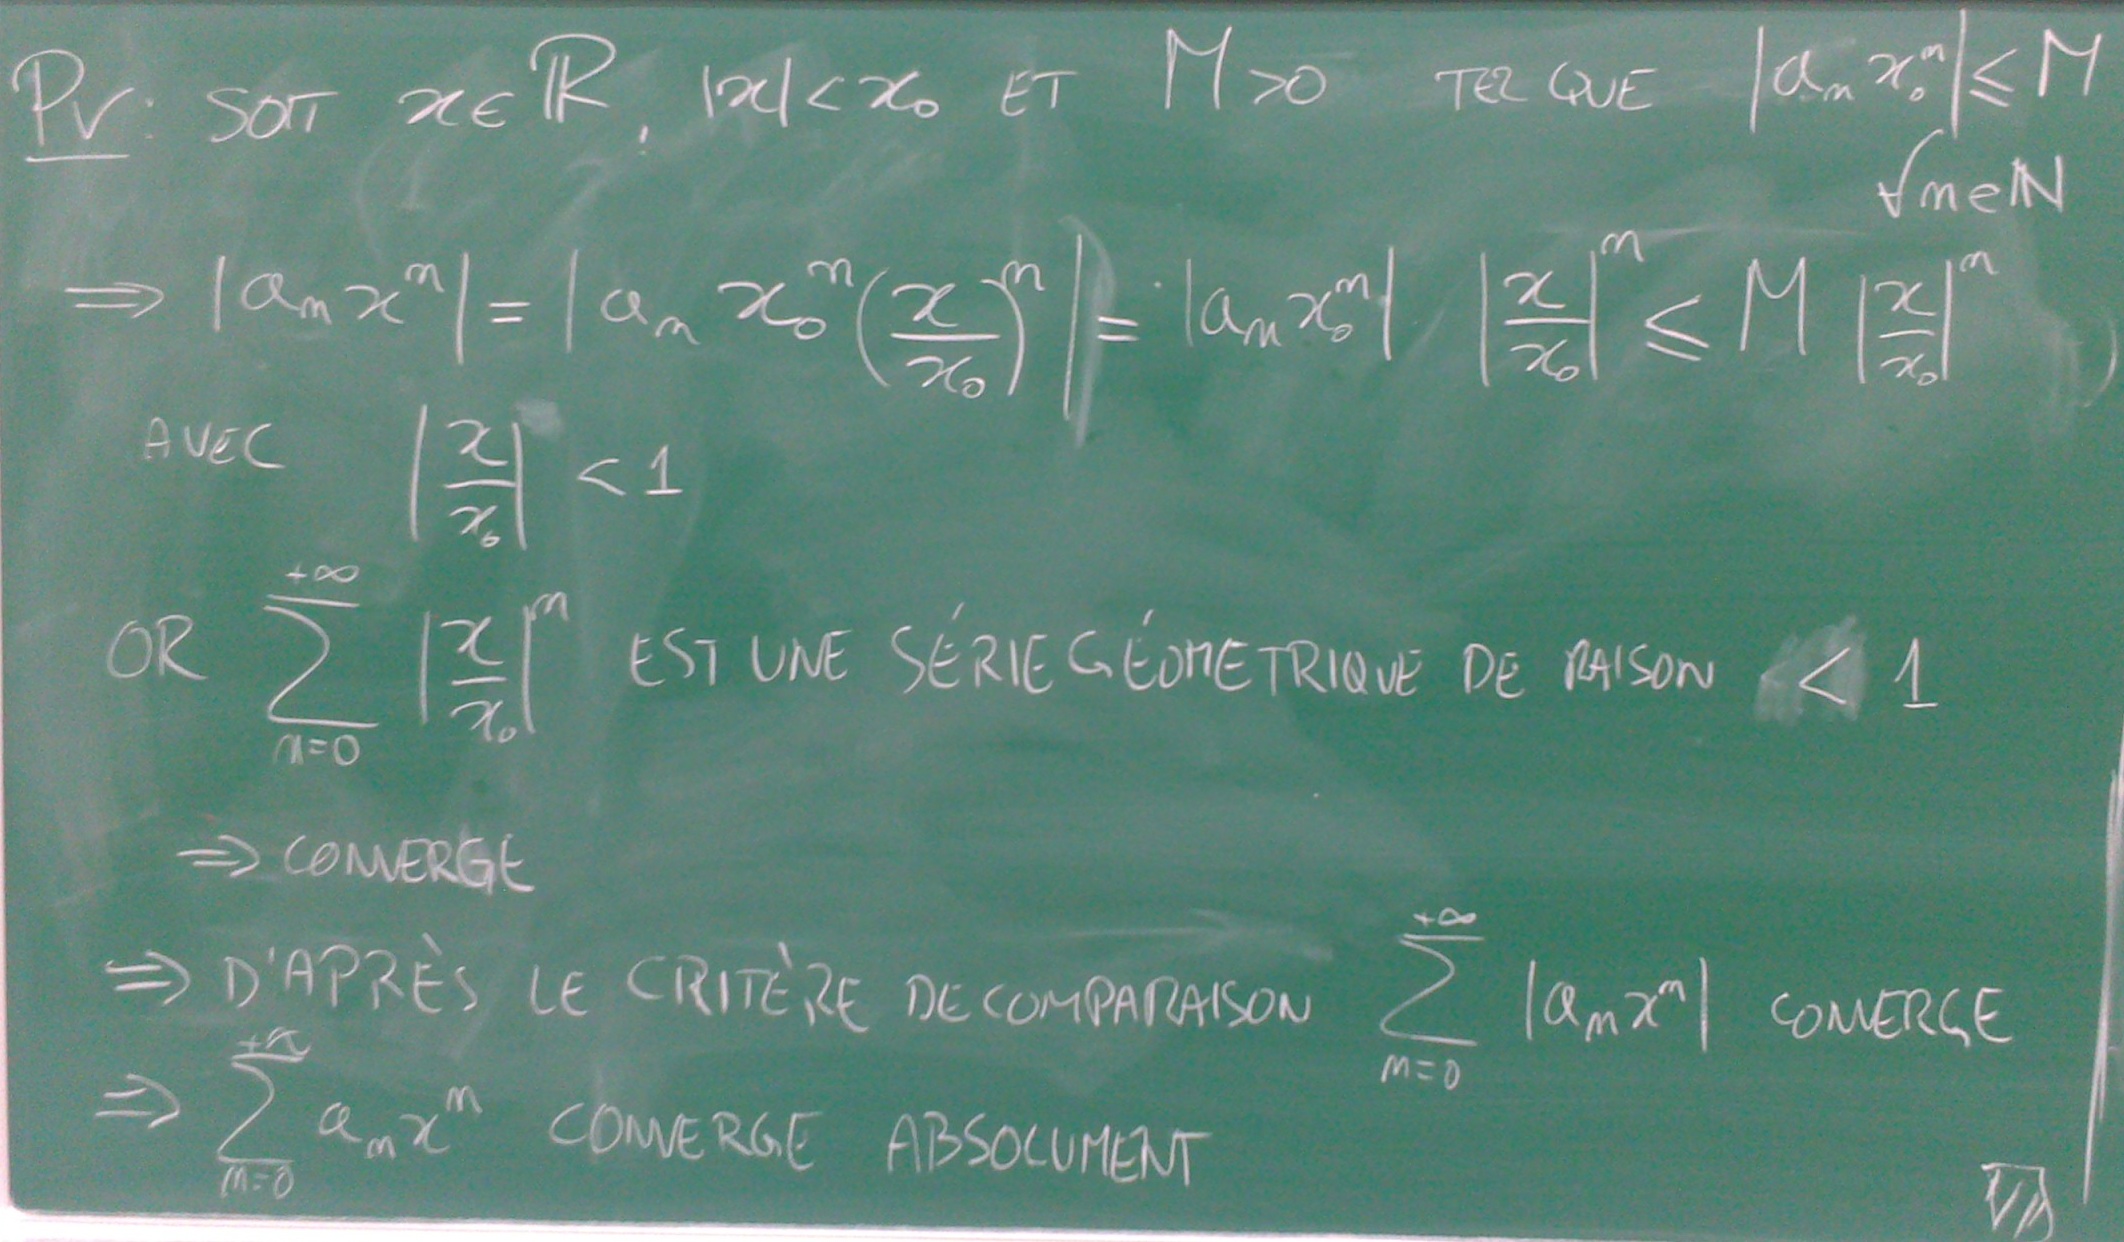 Pv: SOIT x ∈ ℝ, |x| < x₀ ET M > 0 TEL QUE |aₙ x₀ⁿ| ≤ M
∀ n ∈ ℕ
⇒ |aₙ xⁿ| = |aₙ x₀ⁿ (x/x₀)ⁿ| = |aₙ x₀ⁿ| |x/x₀|ⁿ ≤ M |x/x₀|ⁿ
AVEC |x/x₀| < 1
OR ∑_{n=0}^{+∞} |x/x₀|ⁿ EST UNE SÉRIE GÉOMETRIQUE DE RAISON < 1
⇒ CONVERGE
⇒ D'APRÈS LE CRITÈRE DE COMPARAISON ∑_{n=0}^{+∞} |aₙ xⁿ| CONVERGE
⇒ ∑_{n=0}^{+∞} aₙ xⁿ CONVERGE ABSOLUMENT